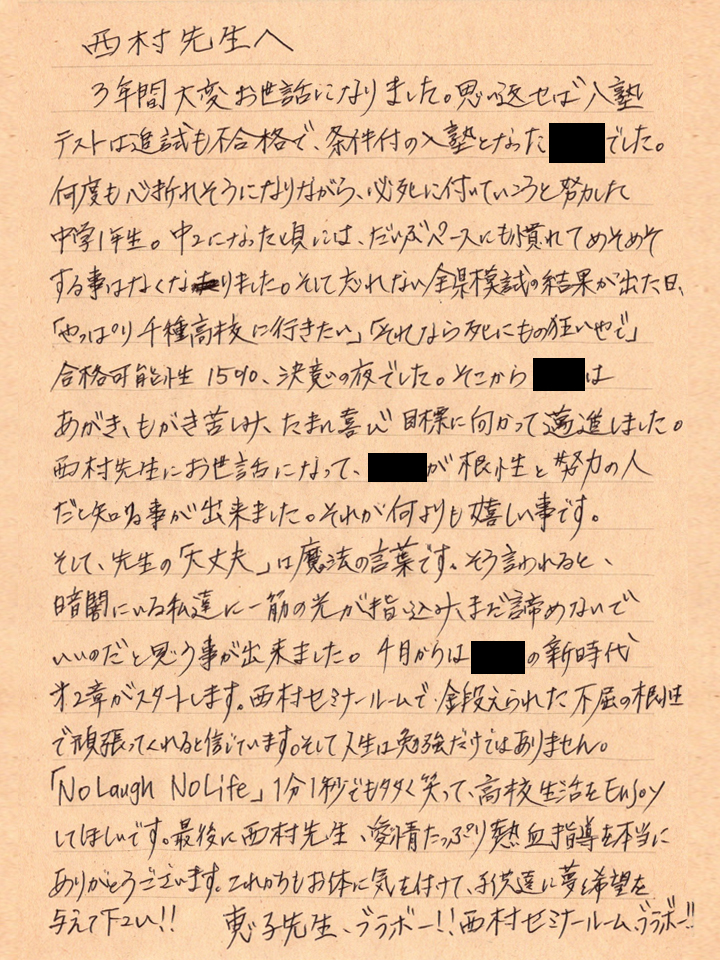 西村先生へ
3年間大変お世話になりました。思い返せば入塾
テストは追試も不合格で、条件付の入塾となったでした。
何度も心折れそうになりながら、必死に付いていこうと努力した
中学1年生。中2になった頃には、だいぶペースにも慣れてめそめそ
する事はなくなりました。そして忘れない全県模試の結果が出た日、
「やっぱり千種高校に行きたい」「それなら死にもの狂いやで」
合格可能性15%、決意の夜でした。そこからは
あがき、もがき苦しみ、たまに喜び目標に向かって邁進しました。
西村先生にお世話になって、が根性と努力の人
だと知る事が出来ました。それが何よりも嬉しい事です。
そして、先生の「大丈夫」は魔法の言葉です。そう言われると、
暗闇にいる私達に一筋の光が指し込み、まだ諦めないで
いいのだと思う事が出来ました。4月からはの新時代
才2章がスタートします。西村ゼミナールームで金段えられた不屈の根性
で頑張ってくれると信じています。そして人生は勉強だけではありません。
「No Laugh No Life」1分1秒でも多く笑って、高校生活をEnjoy
してほしいです。最後に西村先生、愛情たっぷり熱血指導を本当に
ありがとうございます。これからもお体に気を付けて、子供達に夢と希望を
与えて下さい!! 恵子先生、ブラボー!!西村ゼミナールーム、ブラボー!!